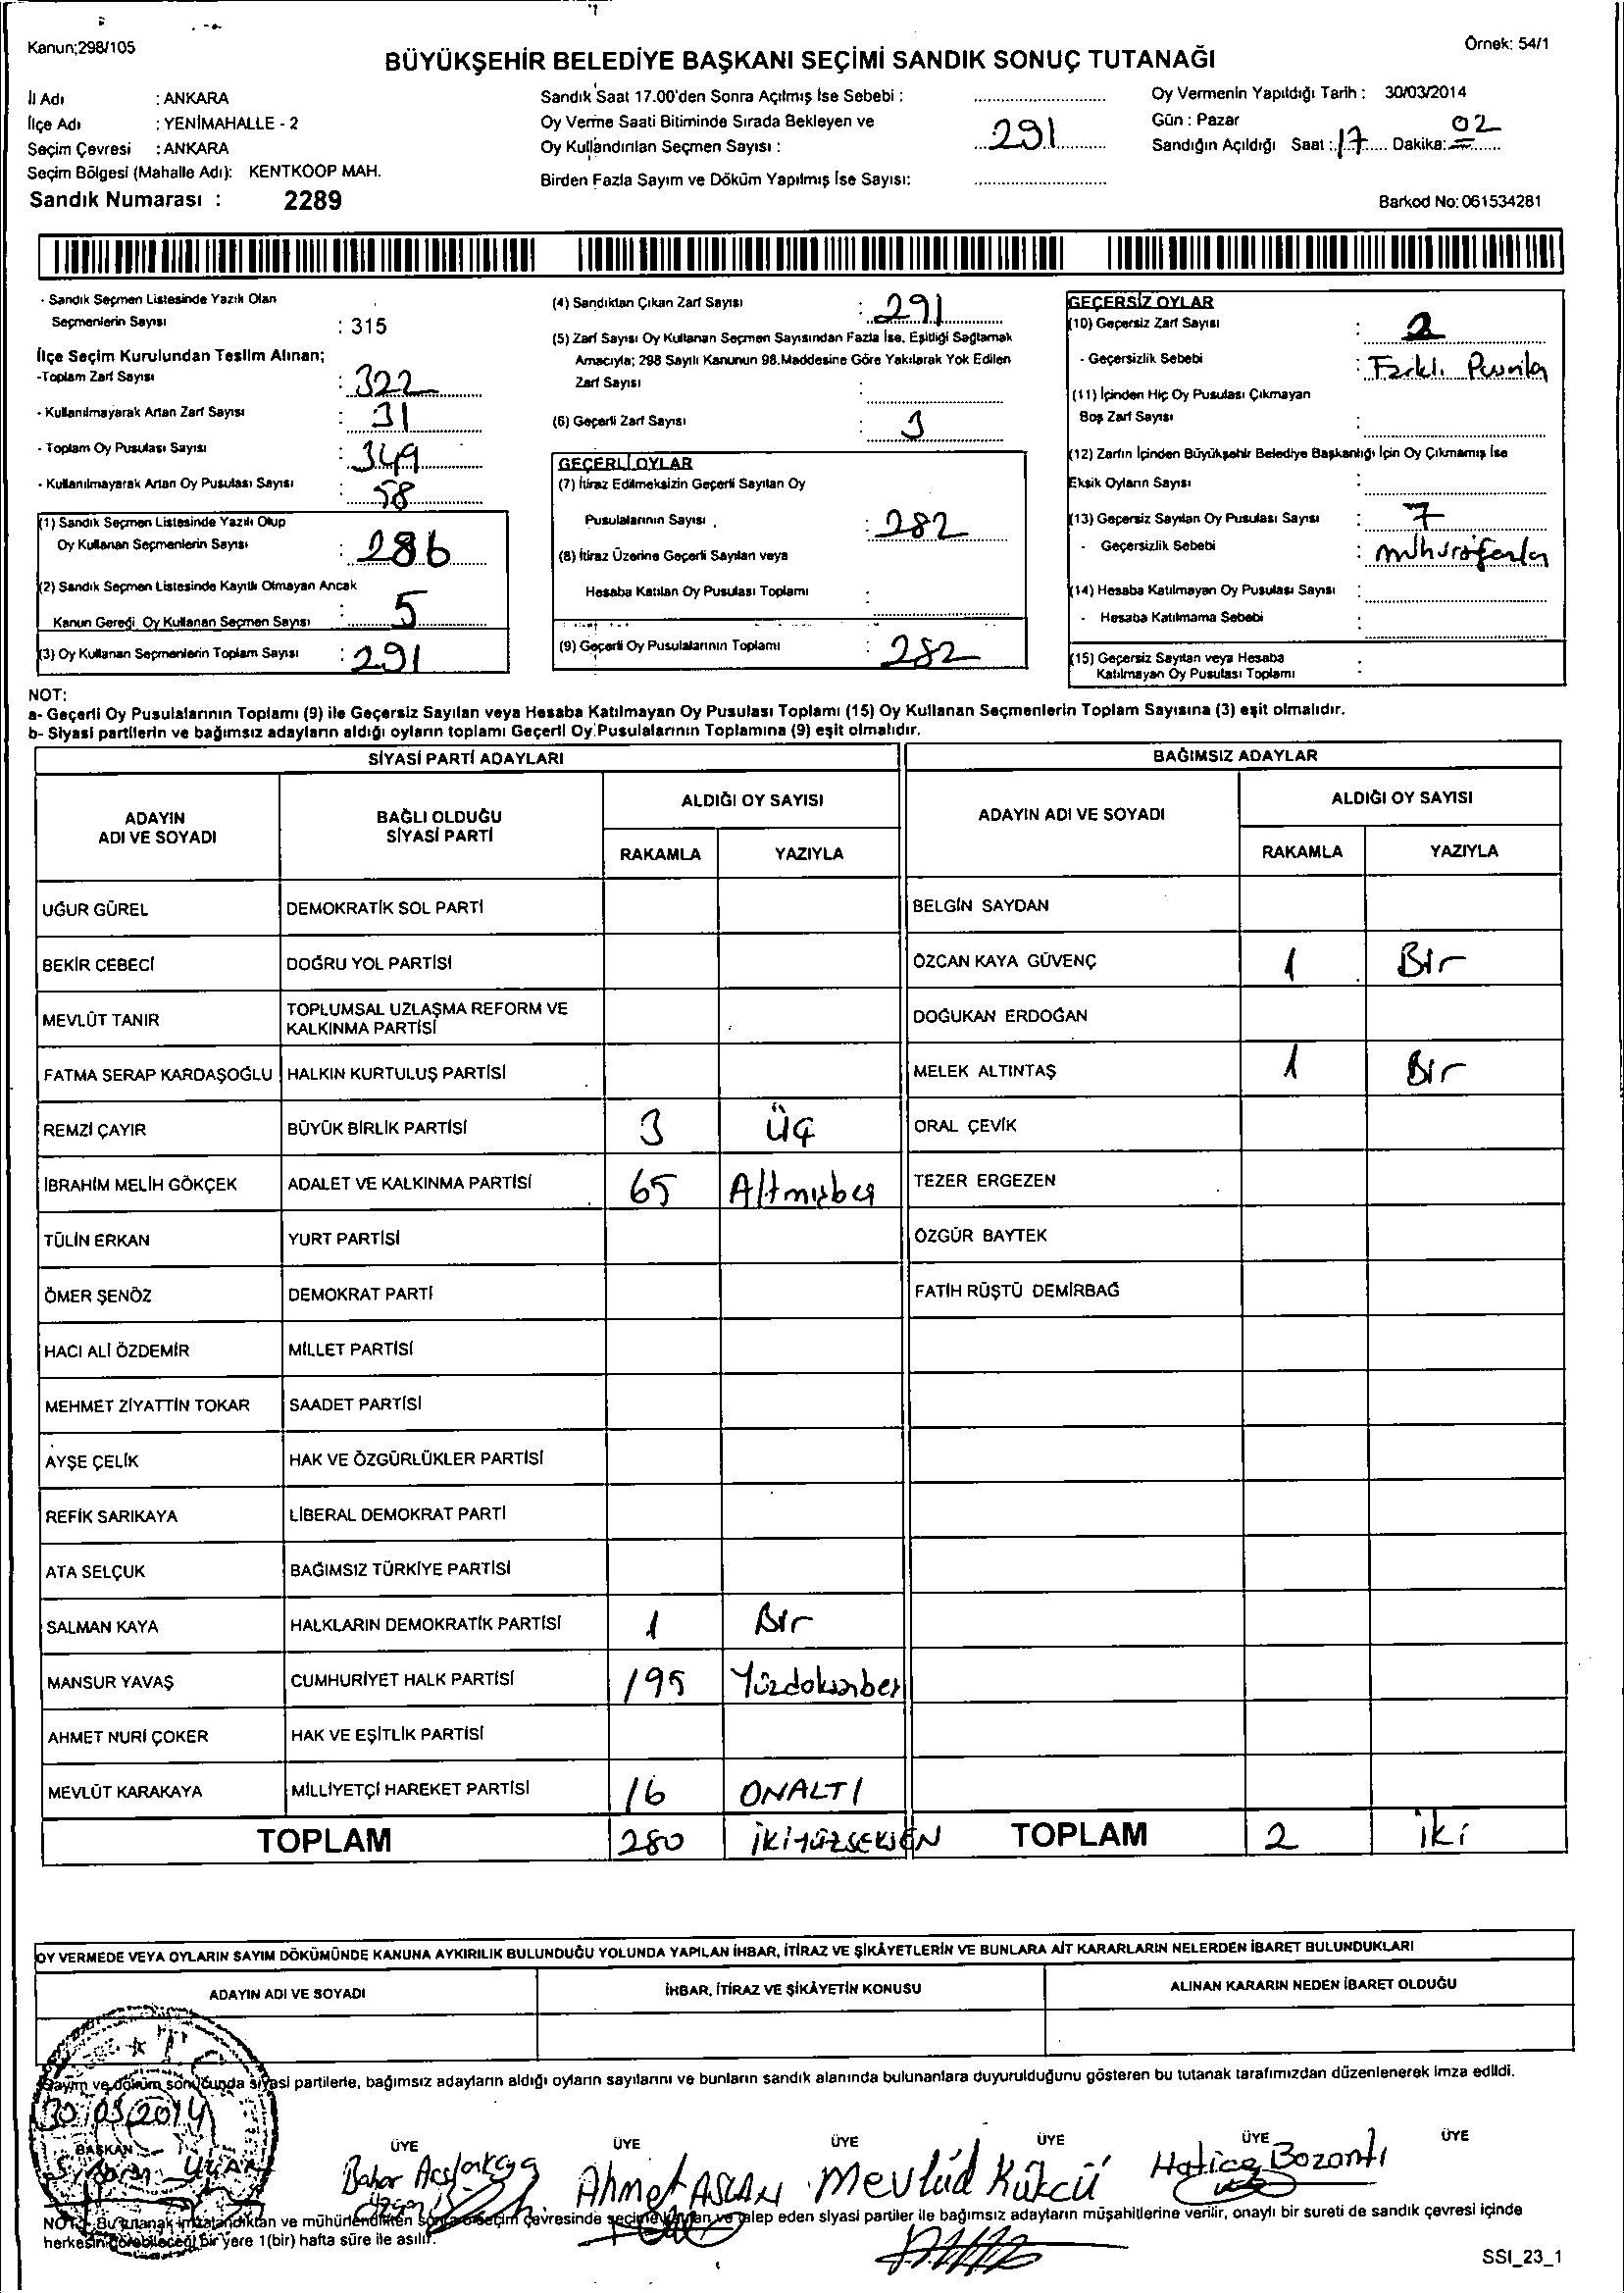 Kanun;298/105
Örnek: 54/1
BÜYÜKŞEHİR BELEDİYE BAŞKANI SEÇİMİ SANDIK SONUÇ TUTANAĞI
İl Adı : ANKARA
İlçe Adı : YENİMAHALLE - 2
Seçim Çevresi : ANKARA
Seçim Bölgesi (Mahalle Adı): KENTKOOP MAH.
Sandık Numarası : 2289
Sandık Saat 17.00'den Sonra Açılmış İse Sebebi :
Oy Verme Saati Bitiminde Sırada Bekleyen ve
Oy Kullandırılan Seçmen Sayısı : 291
Birden Fazla Sayım ve Döküm Yapılmış İse Sayısı:
Oy Vermenin Yapıldığı Tarih : 30/03/2014
Gün : Pazar
Sandığın Açıldığı Saat : 17 Dakika: 02
Barkod No: 061534281
- Sandık Seçmen Listesinde Yazılı Olan
Seçmenlerin Sayısı : 315
İlçe Seçim Kurulundan Teslim Alınan;
-Toplam Zarf Sayısı : 322
- Kullanılmayarak Artan Zarf Sayısı : 31
- Toplam Oy Pusulası Sayısı : 349
- Kullanılmayarak Artan Oy Pusulası Sayısı : 58
(1) Sandık Seçmen Listesinde Yazılı Olup
Oy Kullanan Seçmenlerin Sayısı : 286
(2) Sandık Seçmen Listesinde Kayıtlı Olmayan Ancak
Kanun Gereği Oy Kullanan Seçmen Sayısı : 5
(3) Oy Kullanan Seçmenlerin Toplam Sayısı : 291
(4) Sandıktan Çıkan Zarf Sayısı : 291
(5) Zarf Sayısı Oy Kullanan Seçmen Sayısından Fazla İse, Eşitliği Sağlamak
Amacıyla; 298 Sayılı Kanunun 98.Maddesine Göre Yakılarak Yok Edilen
Zarf Sayısı :
(6) Geçerli Zarf Sayısı : 3
GEÇERLİ OYLAR
(7) İtiraz Edilmeksizin Geçerli Sayılan Oy
Pusulalarının Sayısı : 282
(8) İtiraz Üzerine Geçerli Sayılan veya
Hesaba Katılan Oy Pusulası Toplamı :
(9) Geçerli Oy Pusulalarının Toplamı : 282
GEÇERSİZ OYLAR
(10) Geçersiz Zarf Sayısı : 2
- Geçersizlik Sebebi : Farklı
(11) İçinden Hiç Oy Pusulası Çıkmayan
Boş Zarf Sayısı :
(12) Zarfın İçinden Büyükşehir Belediye Başkanlığı İçin Oy Çıkmamış İse
Eksik Oyların Sayısı :
(13) Geçersiz Sayılan Oy Pusulası Sayısı : 7
- Geçersizlik Sebebi :
(14) Hesaba Katılmayan Oy Pusulası Sayısı :
- Hesaba Katılmama Sebebi :
(15) Geçersiz Sayılan veya Hesaba
Katılmayan Oy Pusulası Toplamı :
NOT:
a- Geçerli Oy Pusulalarının Toplamı (9) ile Geçersiz Sayılan veya Hesaba Katılmayan Oy Pusulası Toplamı (15) Oy Kullanan Seçmenlerin Toplam Sayısına (3) eşit olmalıdır.
b- Siyasi partilerin ve bağımsız adayların aldığı oyların toplamı Geçerli Oy Pusulalarının Toplamına (9) eşit olmalıdır.
SİYASİ PARTİ ADAYLARI BAĞIMSIZ ADAYLAR
ADAYIN ADI VE SOYADI BAĞLI OLDUĞU SİYASİ PARTİ ALDIĞI OY SAYISI ADAYIN ADI VE SOYADI ALDIĞI OY SAYISI
RAKAMLA YAZIYLA RAKAMLA YAZIYLA
UĞUR GÜREL DEMOKRATİK SOL PARTİ BELGİN SAYDAN
BEKİR CEBECİ DOĞRU YOL PARTİSİ ÖZCAN KAYA GÜVENÇ 1 Bir
MEVLÜT TANIR TOPLUMSAL UZLAŞMA REFORM VE KALKINMA PARTİSİ DOĞUKAN ERDOĞAN
FATMA SERAP KARDAŞOĞLU HALKIN KURTULUŞ PARTİSİ MELEK ALTINTAŞ 1 Bir
REMZİ ÇAYIR BÜYÜK BİRLİK PARTİSİ 3 Üç ORAL ÇEVİK
İBRAHİM MELİH GÖKÇEK ADALET VE KALKINMA PARTİSİ 65 Altmışbeş TEZER ERGEZEN
TÜLİN ERKAN YURT PARTİSİ ÖZGÜR BAYTEK
ÖMER ŞENÖZ DEMOKRAT PARTİ FATİH RÜŞTÜ DEMİRBAĞ
HACI ALİ ÖZDEMİR MİLLET PARTİSİ
MEHMET ZİYATTİN TOKAR SAADET PARTİSİ
AYŞE ÇELİK HAK VE ÖZGÜRLÜKLER PARTİSİ
REFİK SARIKAYA LİBERAL DEMOKRAT PARTİ
ATA SELÇUK BAĞIMSIZ TÜRKİYE PARTİSİ
SALMAN KAYA HALKLARIN DEMOKRATİK PARTİSİ 1 Bir
MANSUR YAVAŞ CUMHURİYET HALK PARTİSİ 195 Yüzdoksanbeş
AHMET NURİ ÇOKER HAK VE EŞİTLİK PARTİSİ
MEVLÜT KARAKAYA MİLLİYETÇİ HAREKET PARTİSİ 16 ONALTI
TOPLAM 280 İKİYÜZSEKSEN TOPLAM 2 iki
OY VERMEDE VEYA OYLARIN SAYIM DÖKÜMÜNDE KANUNA AYKIRILIK BULUNDUĞU YOLUNDA YAPILAN İHBAR, İTİRAZ VE ŞİKÂYETLERİN VE BUNLARA AİT KARARLARIN NELERDEN İBARET BULUNDUKLARI
ADAYIN ADI VE SOYADI İHBAR, İTİRAZ VE ŞİKÂYETİN KONUSU ALINAN KARARIN NEDEN İBARET OLDUĞU
Sayım ve döküm sonucunda siyasi partilerle, bağımsız adayların aldığı oyların sayılarını ve bunların sandık alanında bulunanlara duyurulduğunu gösteren bu tutanak tarafımızdan düzenlenerek imza edildi.
30/03/2014
BAŞKAN ÜYE ÜYE ÜYE ÜYE ÜYE ÜYE
Bahar Ahmet ASLAN Mevlüd Hatice Bozantı
NOT: Bu tutanak imzalandıktan ve mühürlendikten sonra o seçim çevresinde seçime katılan ve talep eden siyasi partiler ile bağımsız adayların müşahitlerine verilir, onaylı bir sureti de sandık çevresi içinde
herkesin görebileceği bir yere 1(bir) hafta süre ile asılır.
SSI_23_1